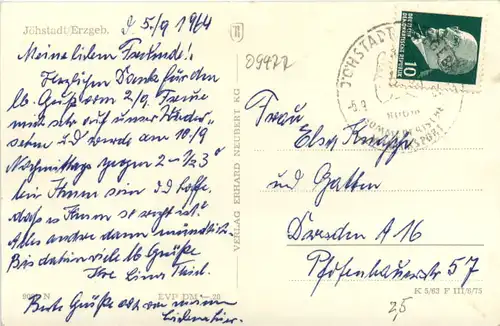 Jöhstadt/Erzgeb.
d 5./9 1964
Meine lieben Freunde!
Herzlichen Dank für den
lb. Gruß vom 2/9. Freue
mich sehr auf unser Wieder-
sehen und werde am 10/9
Nachmittags gegen 2-½3°
bei Ihnen sein. Hoffe
daß es Ihnen so recht ist.
Alles andre dann mündlich.
Bis dahin viele lb Grüße
Ihre
Beste Grüße von meinen
VERLAG ERHARD NEUBERT KG
09477
JÖHSTADT
-5.9
DEUTSCHE
DEMOKRATISCHE REPUBLIK
10
Frau
Else Knapp
und Gatten
Dresden A 16
Pfotenhauerstr 57
EVP DM -.25
K 5/63 F III/6/75
25